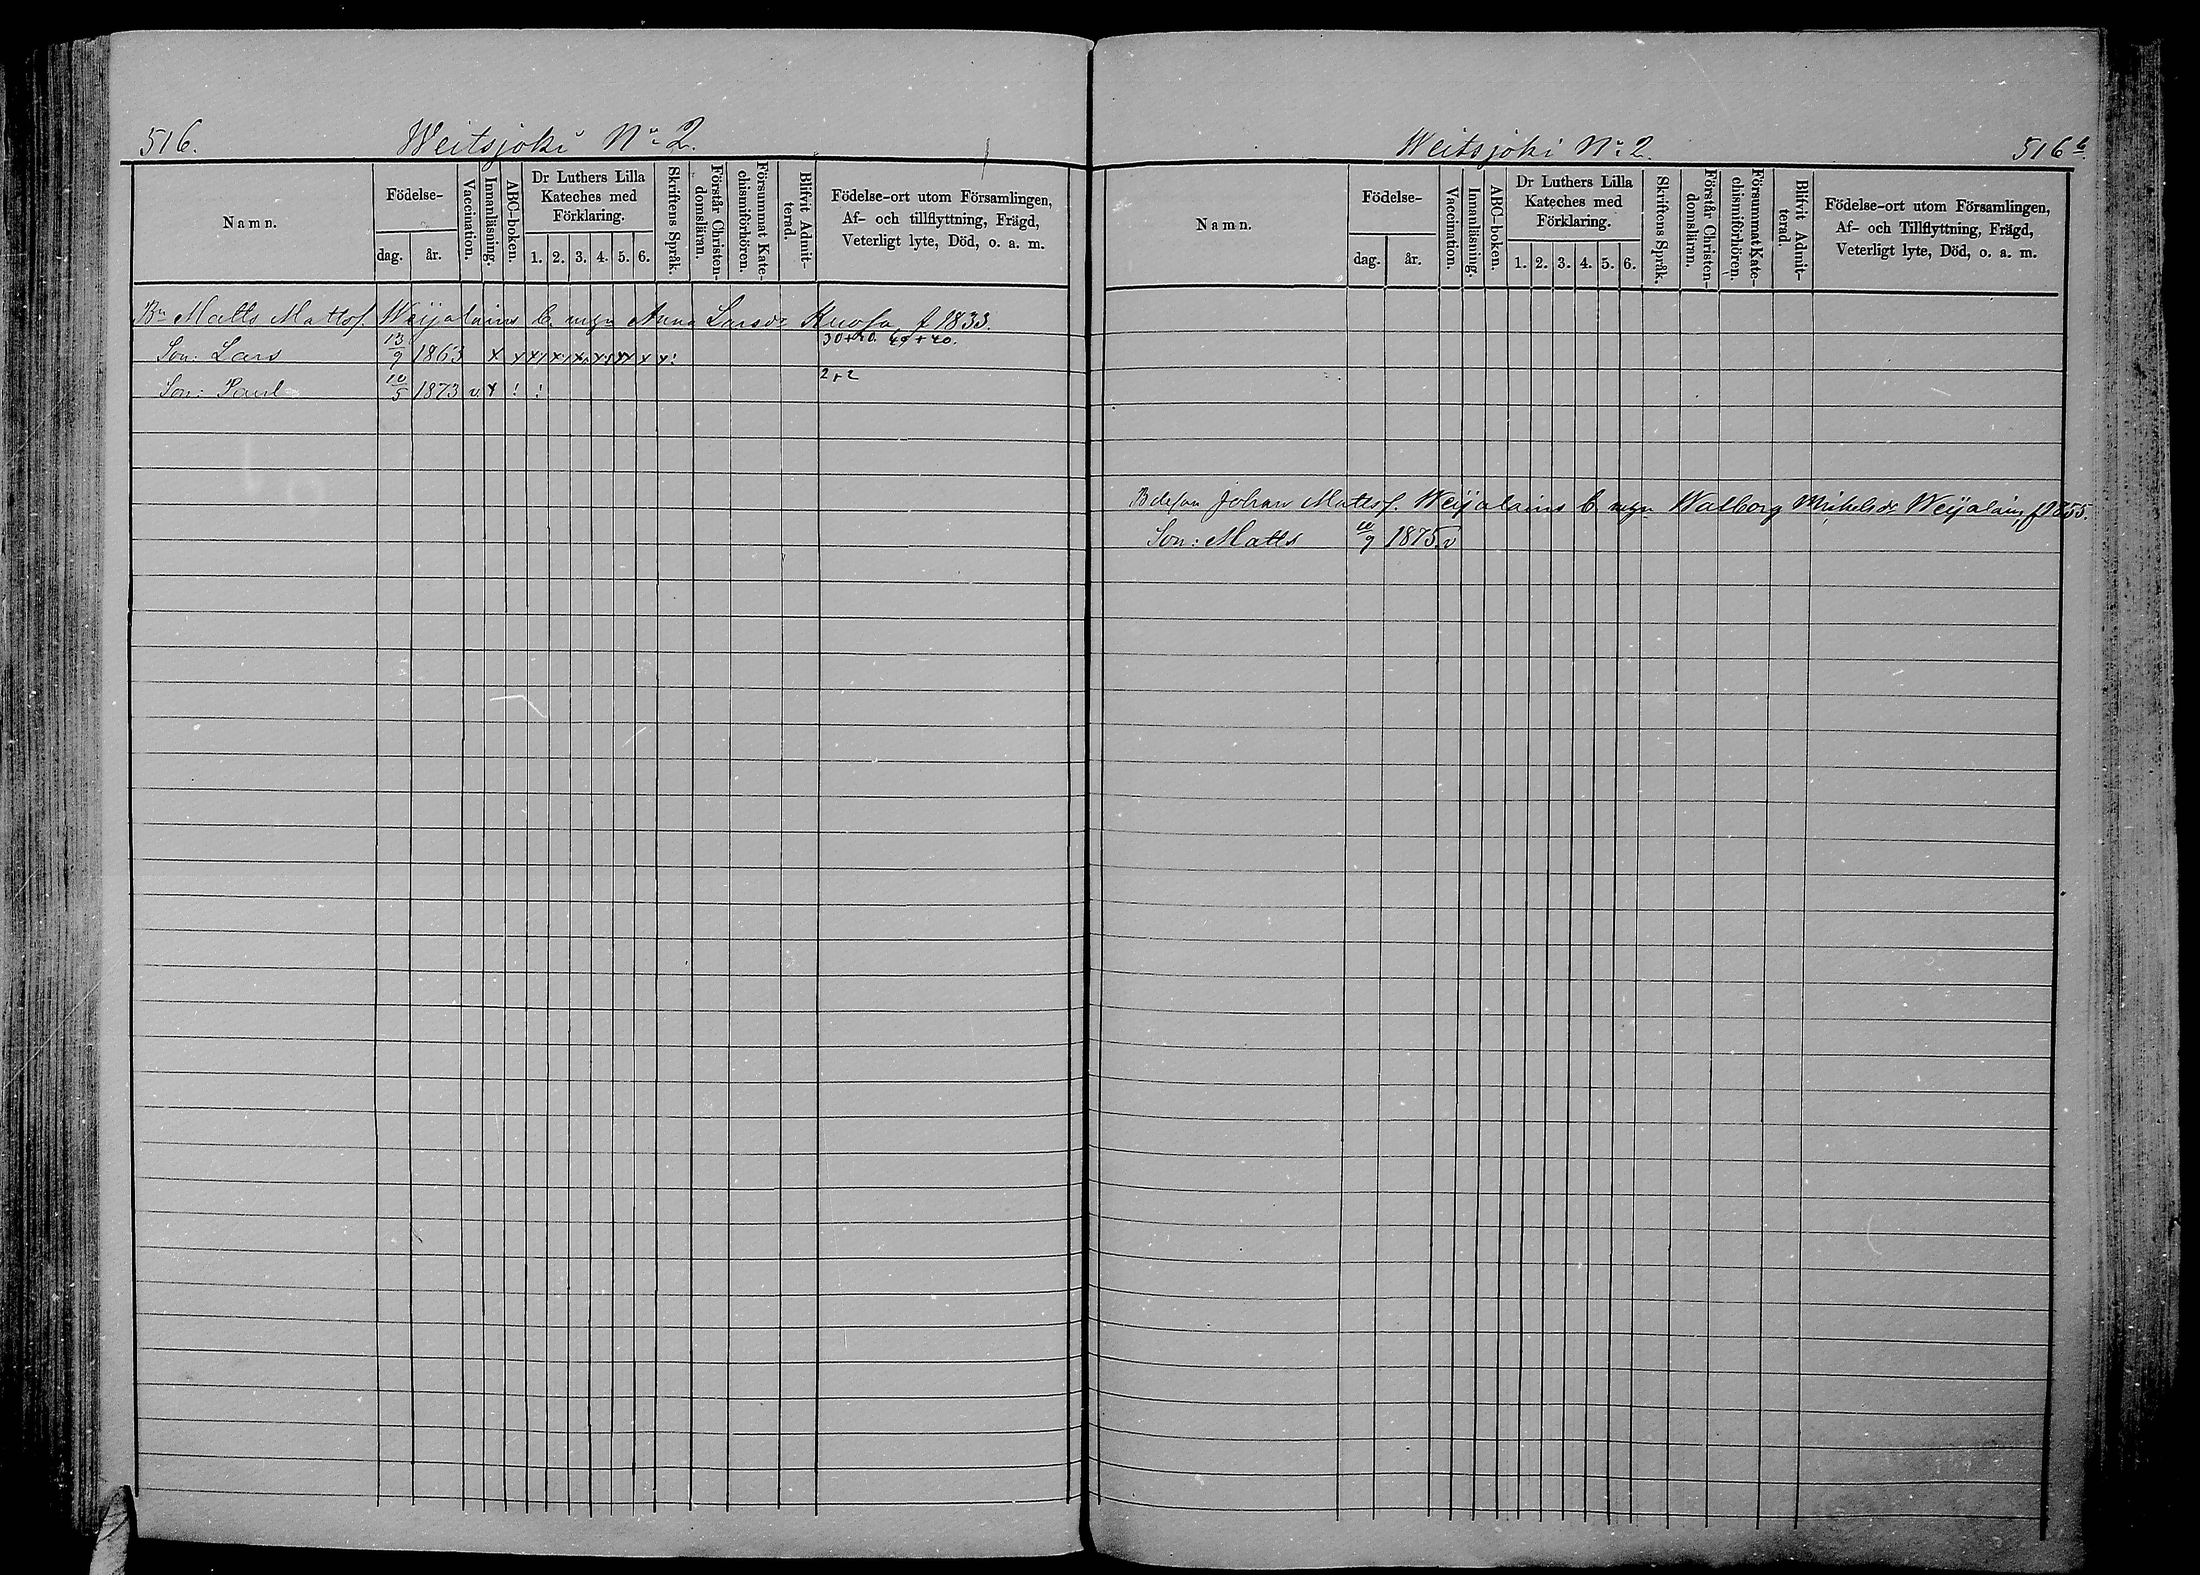 516. Weitsjoki No 2.
Namn.
Födelse-
dag. år.
Vaccination.
Innanläsning.
ABC-boken.
Dr Luthers Lilla
Kateches med
Förklaring.
1. 2. 3. 4. 5. 6.
Skriftens Språk.
Förstår Christen-
domsläran.
Försummat Kate-
chismiförhören.
Blifvit Admit-
terad.
Födelse-ort utom Församlingen,
Af- och tillflyttning, Frägd,
Veterligt lyte, Död, o. a. m.
Bn Matts Mattsf. Weijalains b. m
Anna Larsdr Kuosa f 1833.
Son: Lars 13/9 1863 x
Son: Paul 10/5 1873 v x ! ! 2+2
Weitsjoki No 2. 516 b.
Namn.
Födelse-
dag. år.
Vaccination.
Innanläsning.
ABC-boken.
Dr Luthers Lilla
Kateches med
Förklaring.
1. 2. 3. 4. 5. 6.
Skriftens Språk.
Förstår Christen-
domsläran.
Försummat Kate-
chismiförhören.
Blifvit Admit-
terad.
Födelse-ort utom Församlingen,
Af- och Tillflyttning, Frägd,
Veterligt lyte, Död, o. a. m.
Johan Mattsf. Weijalains b. Walborg Mickelsdr Weijalain, f 1855.
Son: Matts 10/9 1875. v